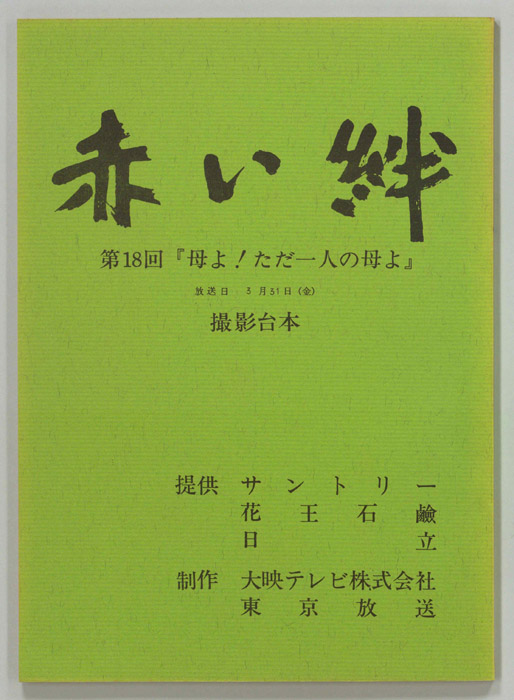 赤い絆
第18回『母よ!ただ一人の母よ』
放送日 3月31日(金)
撮影台本
提供 サントリー
花王石鹼
日立
制作 大映テレビ株式会社
東京放送